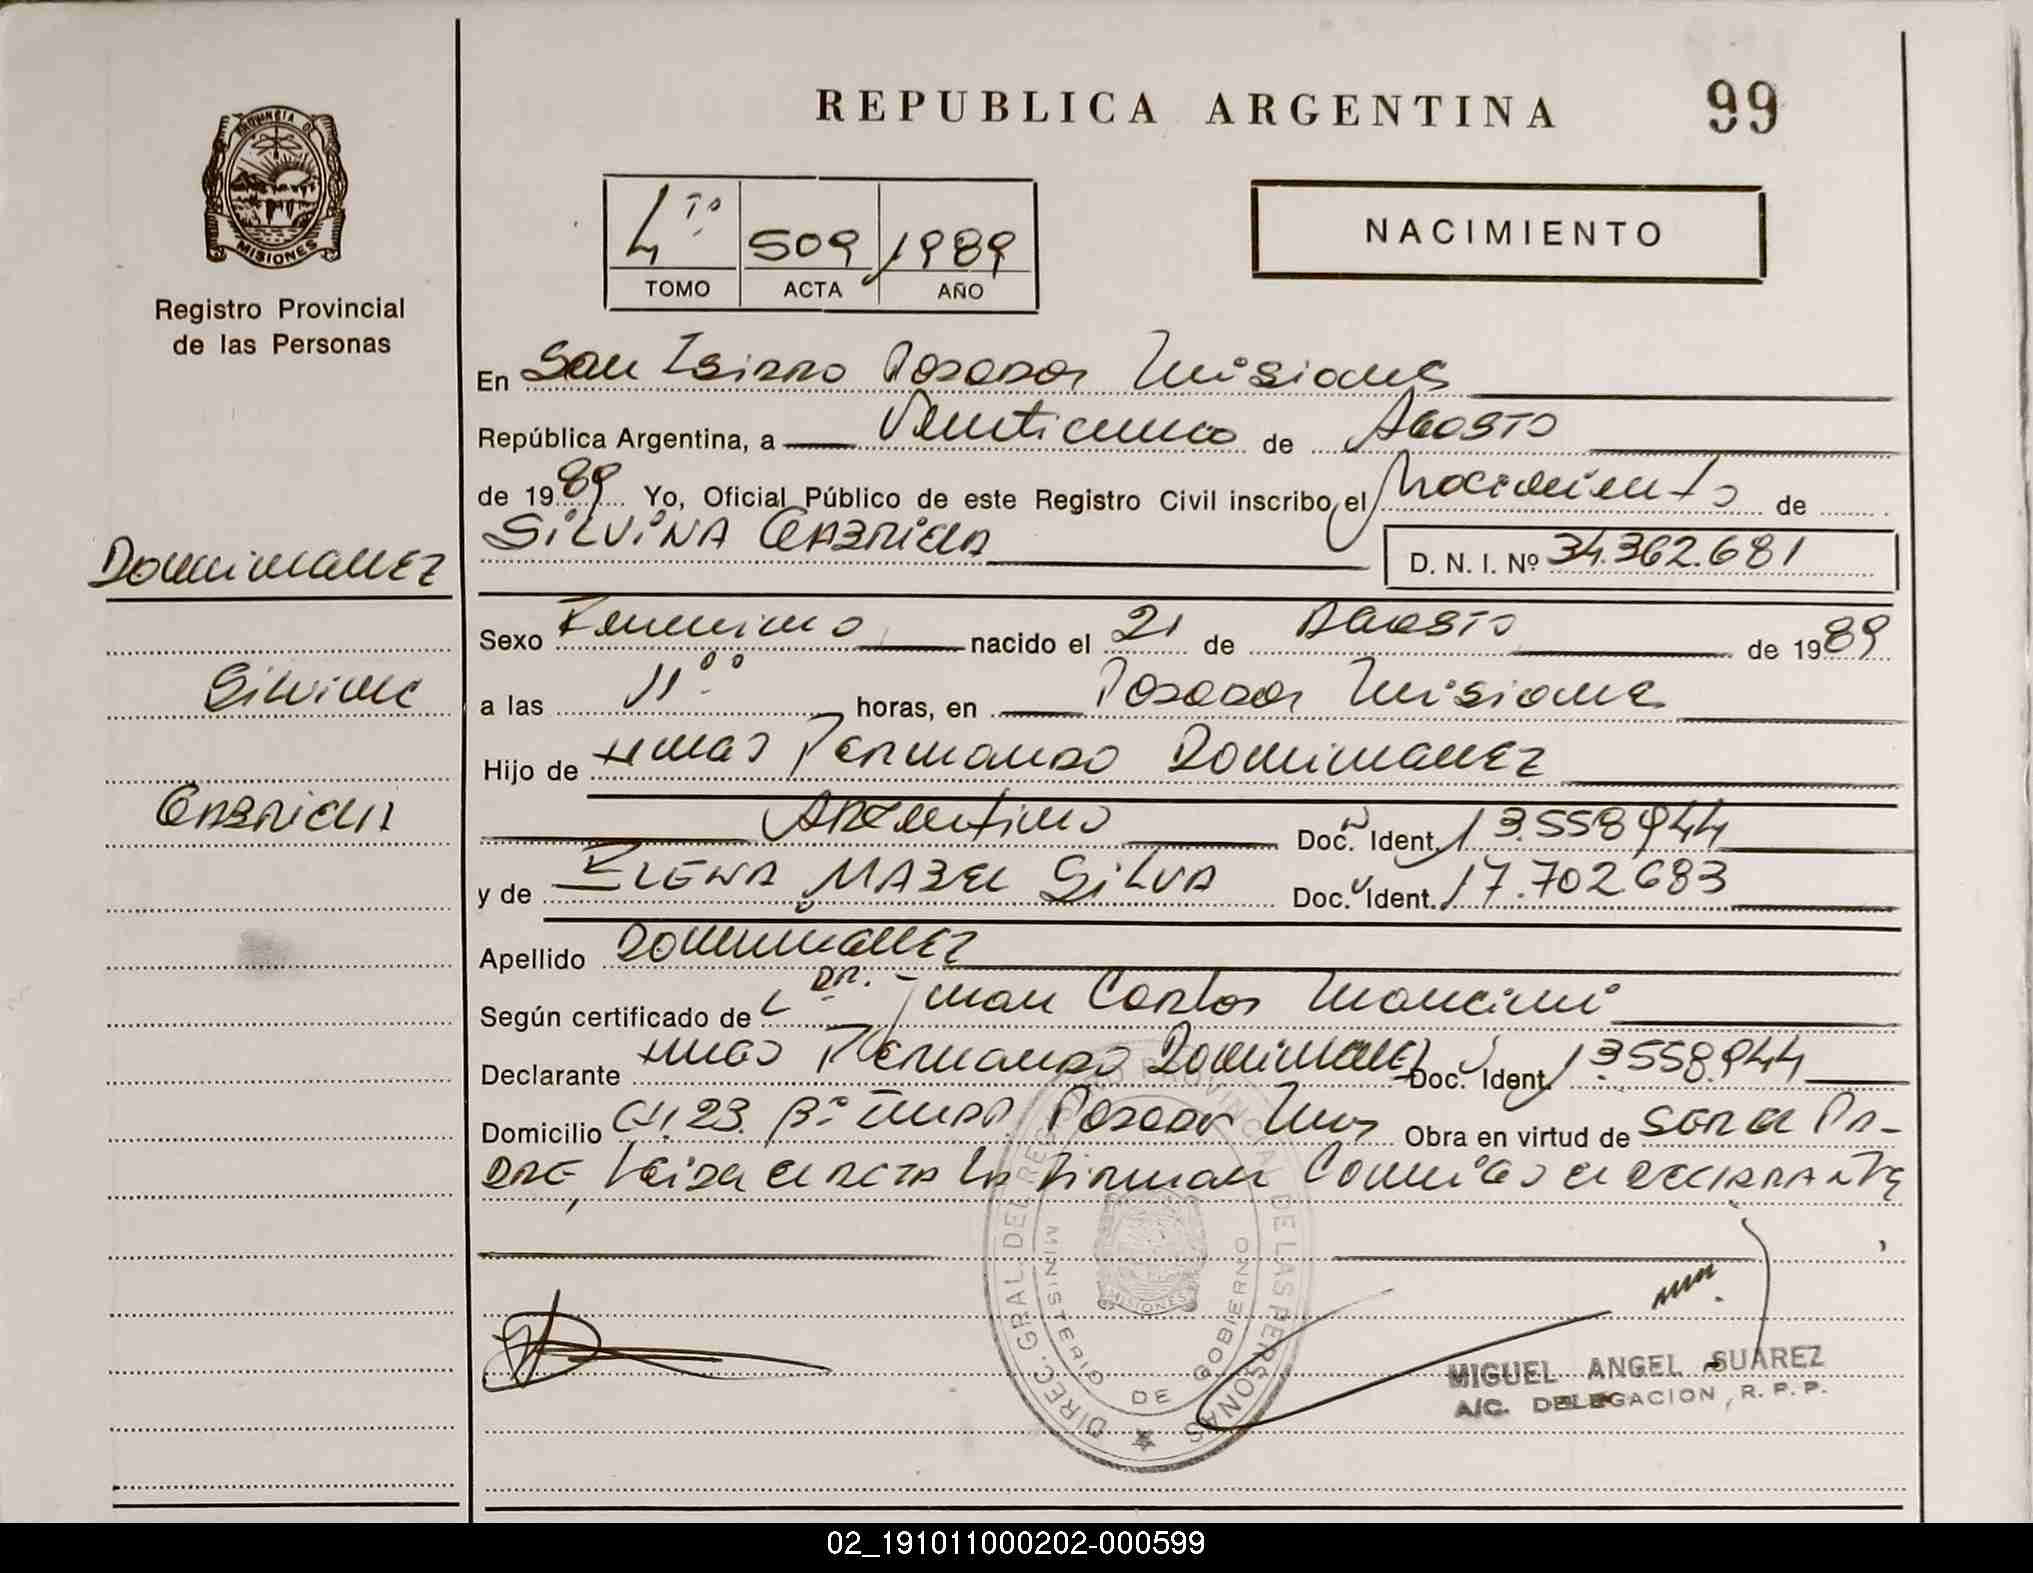 REPUBLICA ARGENTINA
99
PROVINCIA DE
MISIONES
Registro Provincial
de las Personas
4to 509 1989
TOMO ACTA AÑO
NACIMIENTO
En San Isidro Posadas Misiones
República Argentina, a Veinticinco de Agosto
de 1989 Yo, Oficial Público de este Registro Civil inscribo el Nacimiento de
SILVINA GABRIELA
D. N. I. Nº 34.362.681
Dominguez
Silvina
Gabriela
Sexo Femenino nacido el 21 de Agosto de 1989
a las 11:00 horas, en Posadas Misiones
Hijo de Hugo Fernando Dominguez
Argentino Doc. Ident. 13.558.944
y de ELENA MABEL SILVA Doc. Ident. 17.702.683
Apellido Dominguez
Según certificado de DR. Juan Carlos Mancini
Declarante Hugo Fernando Dominguez Doc. Ident. 13.558.944
Domicilio CH. 23 Bº Posadas Mnes Obra en virtud de ser el Pa-
dre, leida el acta la firman conmigo el declarante
DIREC. GRAL. DEL REGISTRO PROVINCIAL DE LAS PERSONAS
MINISTERIO DE GOBIERNO
MISIONES
MIGUEL ANGEL SUAREZ
A/C. DELEGACION, R. P. P.
02_191011000202-000599